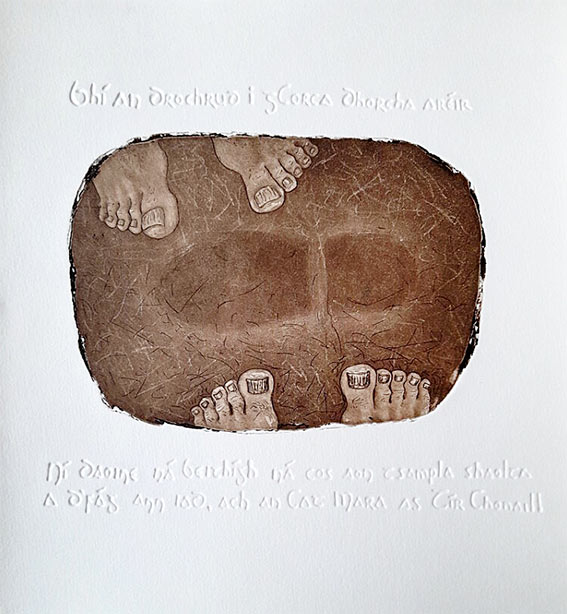 Bhí an drochrud i gCorca dhorcha aréir
Ní daoine ná beithigh ná cos aon tsampla shaolta
a d'fág ann iad, ach an Cat Mara as Tír Chonaill